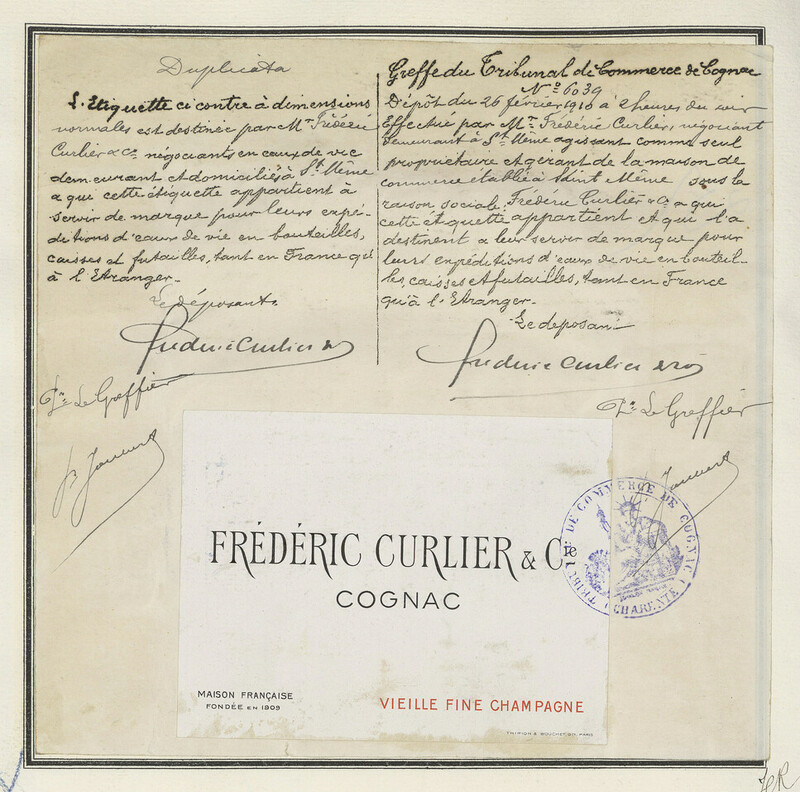 Duplicata
L'Etiquette ci contre à dimensions
normales est destinée par Mr Frédéric
Curlier & Co négociants en eaux de vie
demeurant et domiciliés à St Même
a qui cette étiquette appartient à
servir de marque pour leurs expé-
ditions d'eaux de vie en bouteilles,
caisses et futailles, tant en France qu'
à l'Etranger.
Le déposant
Frédéric Curlier & Co
Pr Le Greffier
Greffe du Tribunal de Commerce de Cognac
No 6039
Dépôt du 26 février 1910 à 2 heures du soir
Effectué par Mr Frédéric Curlier, négociant
demeurant à St Même agissant comme seul
propriétaire et gérant de la maison de
commerce établie à Saint Même sous la
raison sociale Frédéric Curlier & Co a qui
cette étiquette appartient et qui l'a
destinent a leur servir de marque pour
leurs expéditions d'eaux de vie en bouteil-
les, caisses et futailles, tant en France
qu'à l'Etranger.
Le deposant
Frédéric Curlier & Co
Pr Le Greffier
FRÉDÉRIC CURLIER & Cie
COGNAC
MAISON FRANÇAISE
FONDÉE EN 1809
VIEILLE FINE CHAMPAGNE
TRIBUNAL DE COMMERCE DE COGNAC
(CHARENTE)